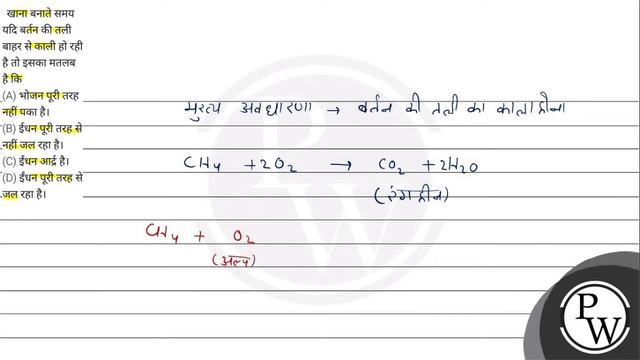 खाना बनाते समय
यदि बर्तन की तली
बाहर से काली हो रही
है तो इसका मतलब
है कि
(A) भोजन पूरी तरह
नहीं पका है।
(B) ईंधन पूरी तरह से
नहीं जल रहा है।
(C) ईंधन आर्द्र है।
(D) ईंधन पूरी तरह से
जल रहा है।
मुख्य अवधारणा → बर्तन की तली का काला होना
CH₄ + 2O₂ → CO₂ + 2H₂O
(रंगहीन)
CH₄ + O₂
(अल्प)
P
W
P
W